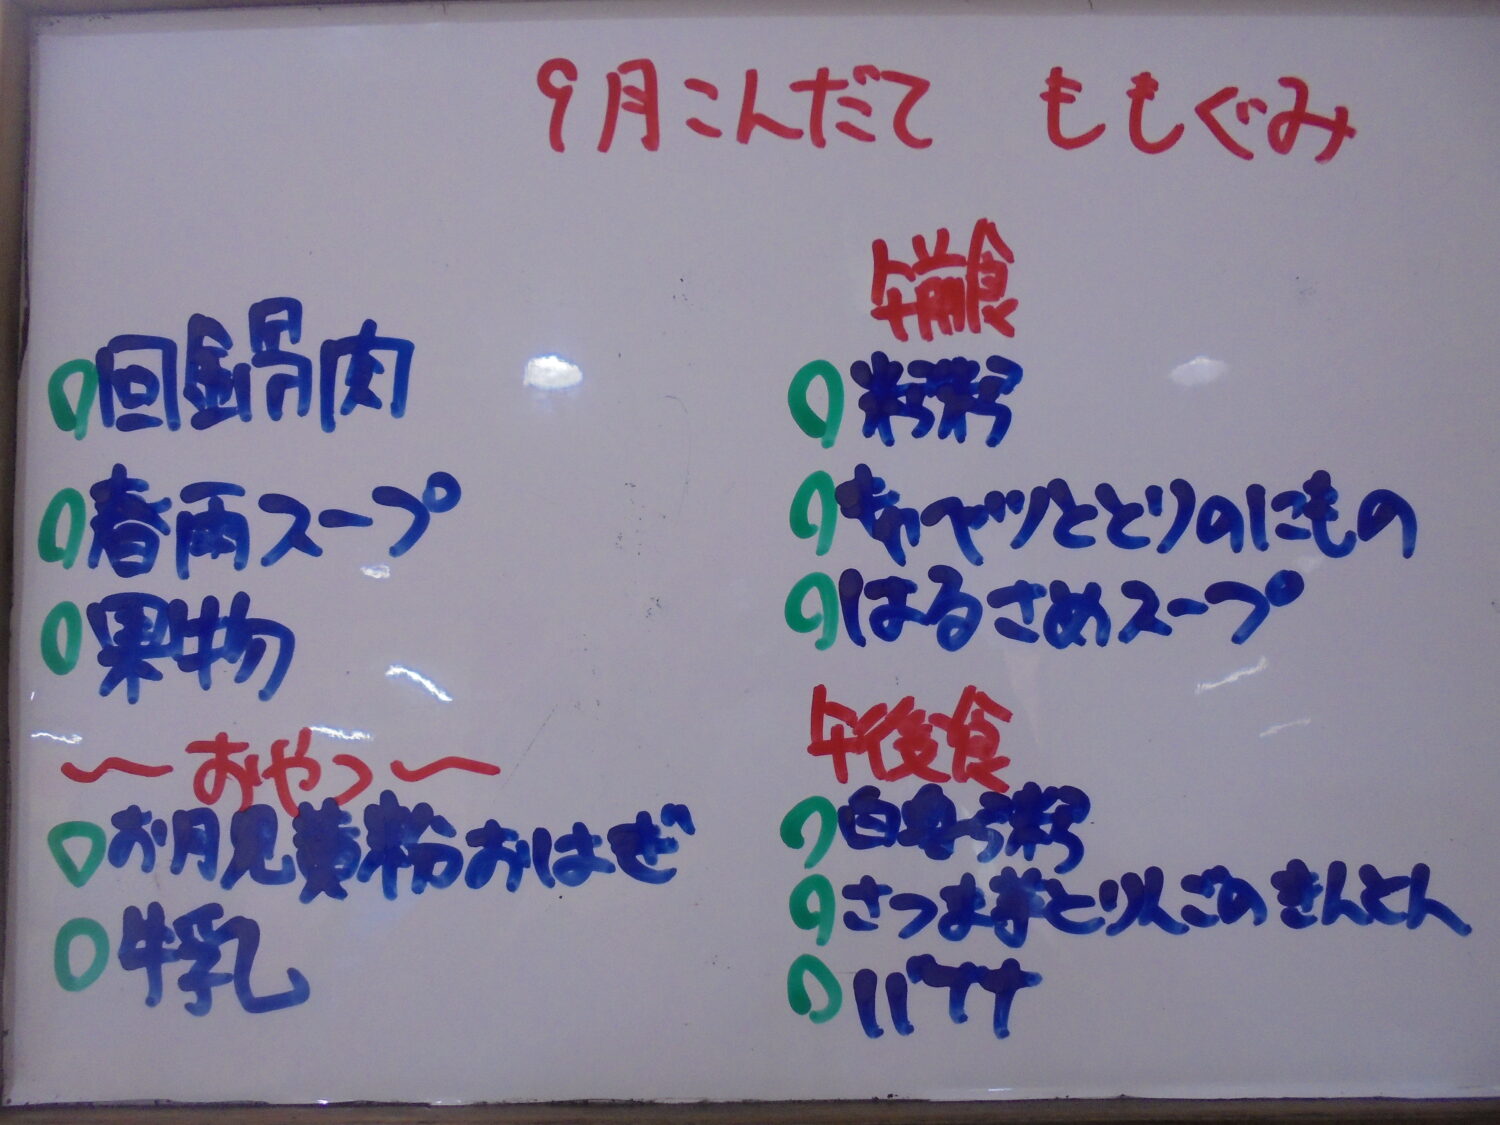 9月こんだて ももぐみ
回鍋肉
春雨スープ
果物
〜おやつ〜
お月見黄粉おはぎ
牛乳
午前食
粥
キャベツととりのにもの
はるさめスープ
午後食
粥
さつま芋とりんごのきんとん
バナナ